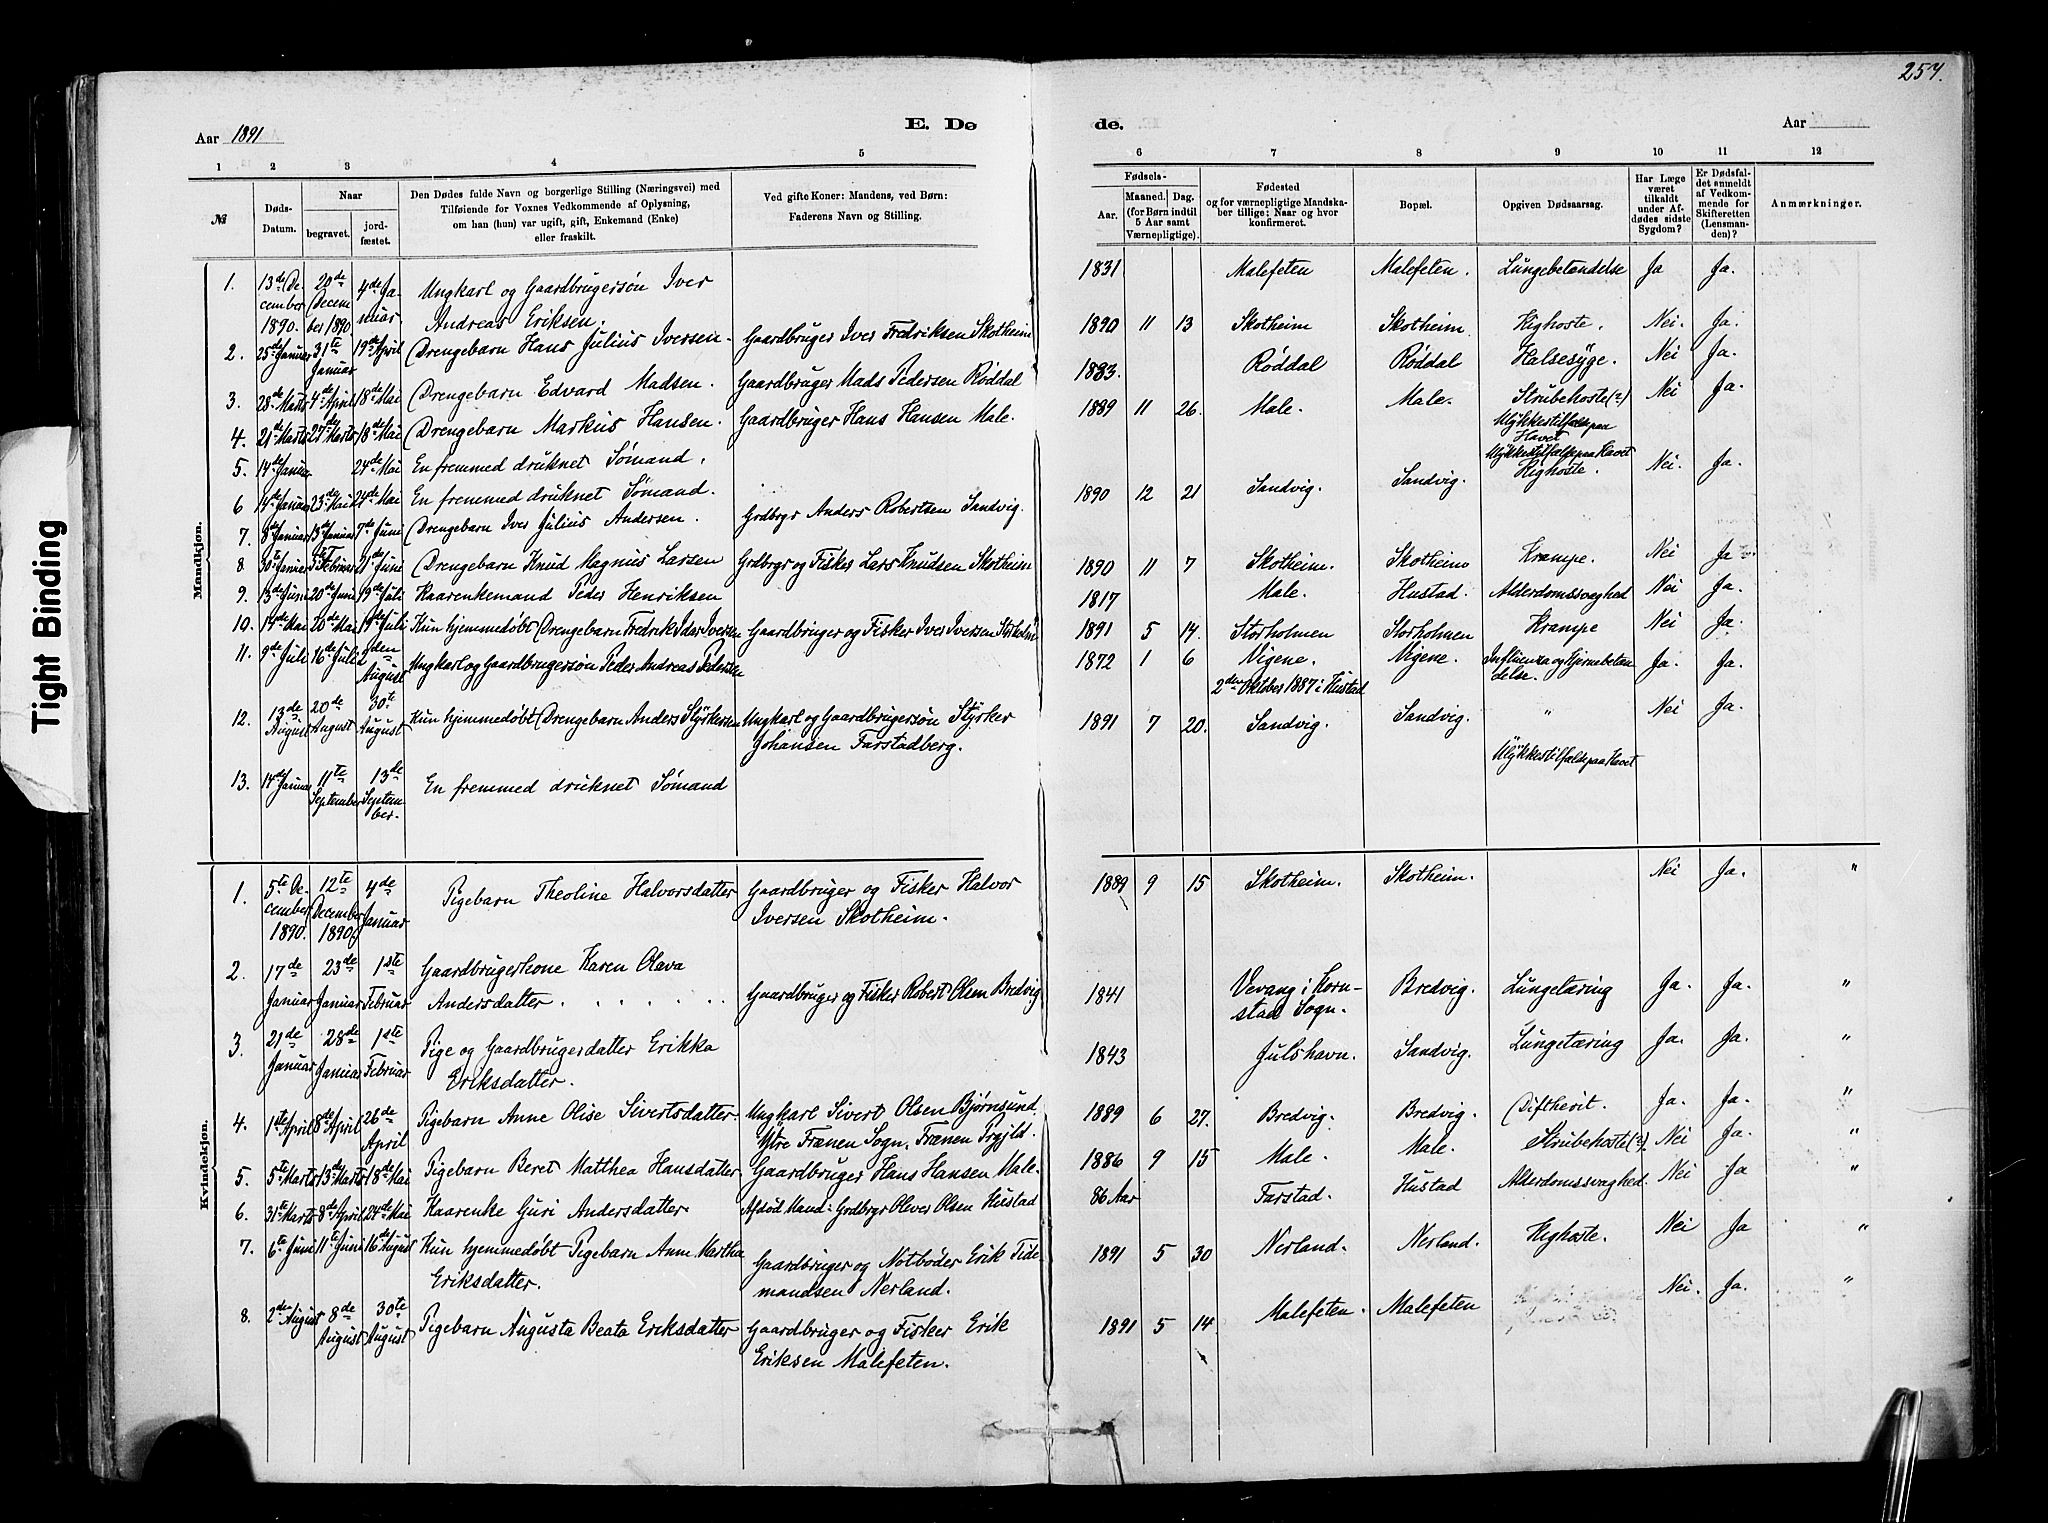 257.
Aar 1891
E. Dø
de.
Aar
1 2 3 4 5
6 7 8 9 10 11 12
№
Døds-Datum.
Naar
begravet.
jord-fæstet.
Den Dødes fulde Navn og borgerlige Stilling (Næringsvei) med
Tilføiende for Voxnes Vedkommende af Oplysning,
om han (hun) var ugift, gift, Enkemand (Enke)
eller fraskilt.
Ved gifte Koner: Mandens, ved Børn:
Faderens Navn og Stilling.
Fødsels-
Aar.
Maaned. Dag.
(for Børn indtil
5 Aar samt
Værnepligtige).
Fødested
og for værnepligtige Mandska-
ber tillige: Naar og hvor
konfirmeret.
Bopæl.
Opgiven Dødsaarsag.
Har Læge
været
tilkaldt
under Af-
dødes sidste
Sygdom?
Er Dødsfal-
det anmeldt
af Vedkom-
mende for
Skifteretten
(Lensman-
den)?
Anmærkninger.
Mandkjøn.
1. 13de December 1890. 20de December 1890 4de Januar. Ungkarl og Gaardbrugersøn Iver
Andreas Eriksen. 1831 Malefeten Malefeten. Lungebetændelse Ja Ja.
2. 25de Januar 31te Januar 19de April Drengebarn Hans Julius Iversen. Gaardbruger Iver Fredriksen Skotheim 1890 11 13 Skotheim Skotheim. Kighoste. Nei. Ja.
3. 28de Marts 4de April 18de Mai Drengebarn Edvard Madsen. Gaardbruger Mads Pedersen Røddal 1883. Røddal Røddal Halsesyge. Nei Ja.
4. 21de Marts 27de Marts 18de Mai Drengebarn Markus Hansen. Gaardbruger Hans Hansen Male. 1889 11 26. Male. Male. Strubehoste(?) Nei Ja.
5. 14de Januar 24de Mai En fremmed druknet Sømand. Ulykkestilfælde paa
Havet
6 14de Januar 23de Mai 24de Mai En fremmed druknet Sømand. Ulykkestilfælde paa Havet
7. 8de Januar 13de Januar 7de Juni Drengebarn Iver Julius Andersen. Grdbrgr Anders Robertsen Sandvig. 1890 12 21 Sandvig. Sandvig. Kighoste. Nei. Ja.
8 30te Januar Februar 21de Juni Drengebarn Knud Magnus Larsen Grdbrgr og Fisker Lars Knudsen Skotheim 1890 11 7 Skotheim. Skotheim Krampe. Nei Ja
9. 13de Juni 20de Juni 19de Juli Kaarenkemand Peder Henriksen 1817 Male. Hustad. Alderdomssvaghed Nei Ja
10. 14de Mai 20de Mai 19de Juli Kun hjemmedøbt Drengebarn Fredrik Idar Iversen Gaardbruger og Fisker Iver Iversen Storholm 1891 5 14. Storholmen Storholmen Krampe Nei Ja.
11. 9de Juli 16de Juli 9den August Ungkarl og Gaardbrugersøn Peder Andreas Pedersen 1872 1 6 Vigene. Vigene. Influenza og Hjernebetæn
delse. Ja. Ja.
2den Oktober 1887 i Hustad
12. 13de August 20de August 30te August Kun hjemmedøbt Drengebarn Anders Styrkersen Ungkarl og Gaardbrugersøn Styrker
Johansen Farstadberg. 1891 7 20. Sandvig. Sandvig. " Nei Ja.
13. 14de Januar 11te September 13de September. En fremmed druknet Sømand Ulykkestilfælde paa Havet
Kvindekjøn.
1. 5te December 1890. 12te December 1890. 4de Januar Pigebarn Theoline Halvorsdatter Gaardbruger og Fisker Halvor
Iversen Skotheim. 1889 9 15 Skotheim. Skotheim. Nei Ja. "
2. 17de Januar 23de Januar 1ste Februar Gaardbrugerkone Karen Olava
Andersdatter. Gaardbruger og Fisker Robert Olsen Bredvig 1841 Vevang i Korn-
stad Sogn. Bredvig. Lungetæring Ja. Ja. "
3. 21de Januar 28de Januar 1ste Februar Pige og Gaardbrugerdatter Erikka
Eriksdatter. 1843 Julshavn. Sandvig. Lungetæring Ja. Ja. "
4. 1te April 8de April 26de April Pigebarn Anne Olise Sivertsdatter. Ungkarl Sivert Olsen Bjørnsund
Ytre Frænen Sogn, Frænen Prgjld. 1889 6 27. Bredvig. Bredvig. Diftherit. Ja. Ja. "
5. 5te Marts 13de Marts 18de Mai Pigebarn Beret Matthea Hansdatter Gaardbruger Hans Hansen Male. 1886 9 15 Male. Male. Strubehoste(?). Nei Ja. "
6. 31te Marts 8de April 24de Mai Kaarenke Guri Andersdatter Afdød Mand: Grdbrgr Oliver Olsen Hustad 86 Aar Farstad. Hustad Alderdomssvaghed. Nei Ja "
7. 6te Juni 11te Juni 16de August Kun hjemmedøbt Pigebarn Anne Martha
Eriksdatter. Gaardbruger og Notbøder Erik Tide
mandsen Nerland. 1891 5 30 Nerland. Nerland. Kighoste. Nei Ja "
8. 2de August 8de August 30te August Pigebarn Augusta Beata Eriksdatter Gaardbruger og Fisker Erik
Eriksen Malefeten. 1891 5 14. Malefeten. Malefeten Nei. Ja. "
Tight Binding